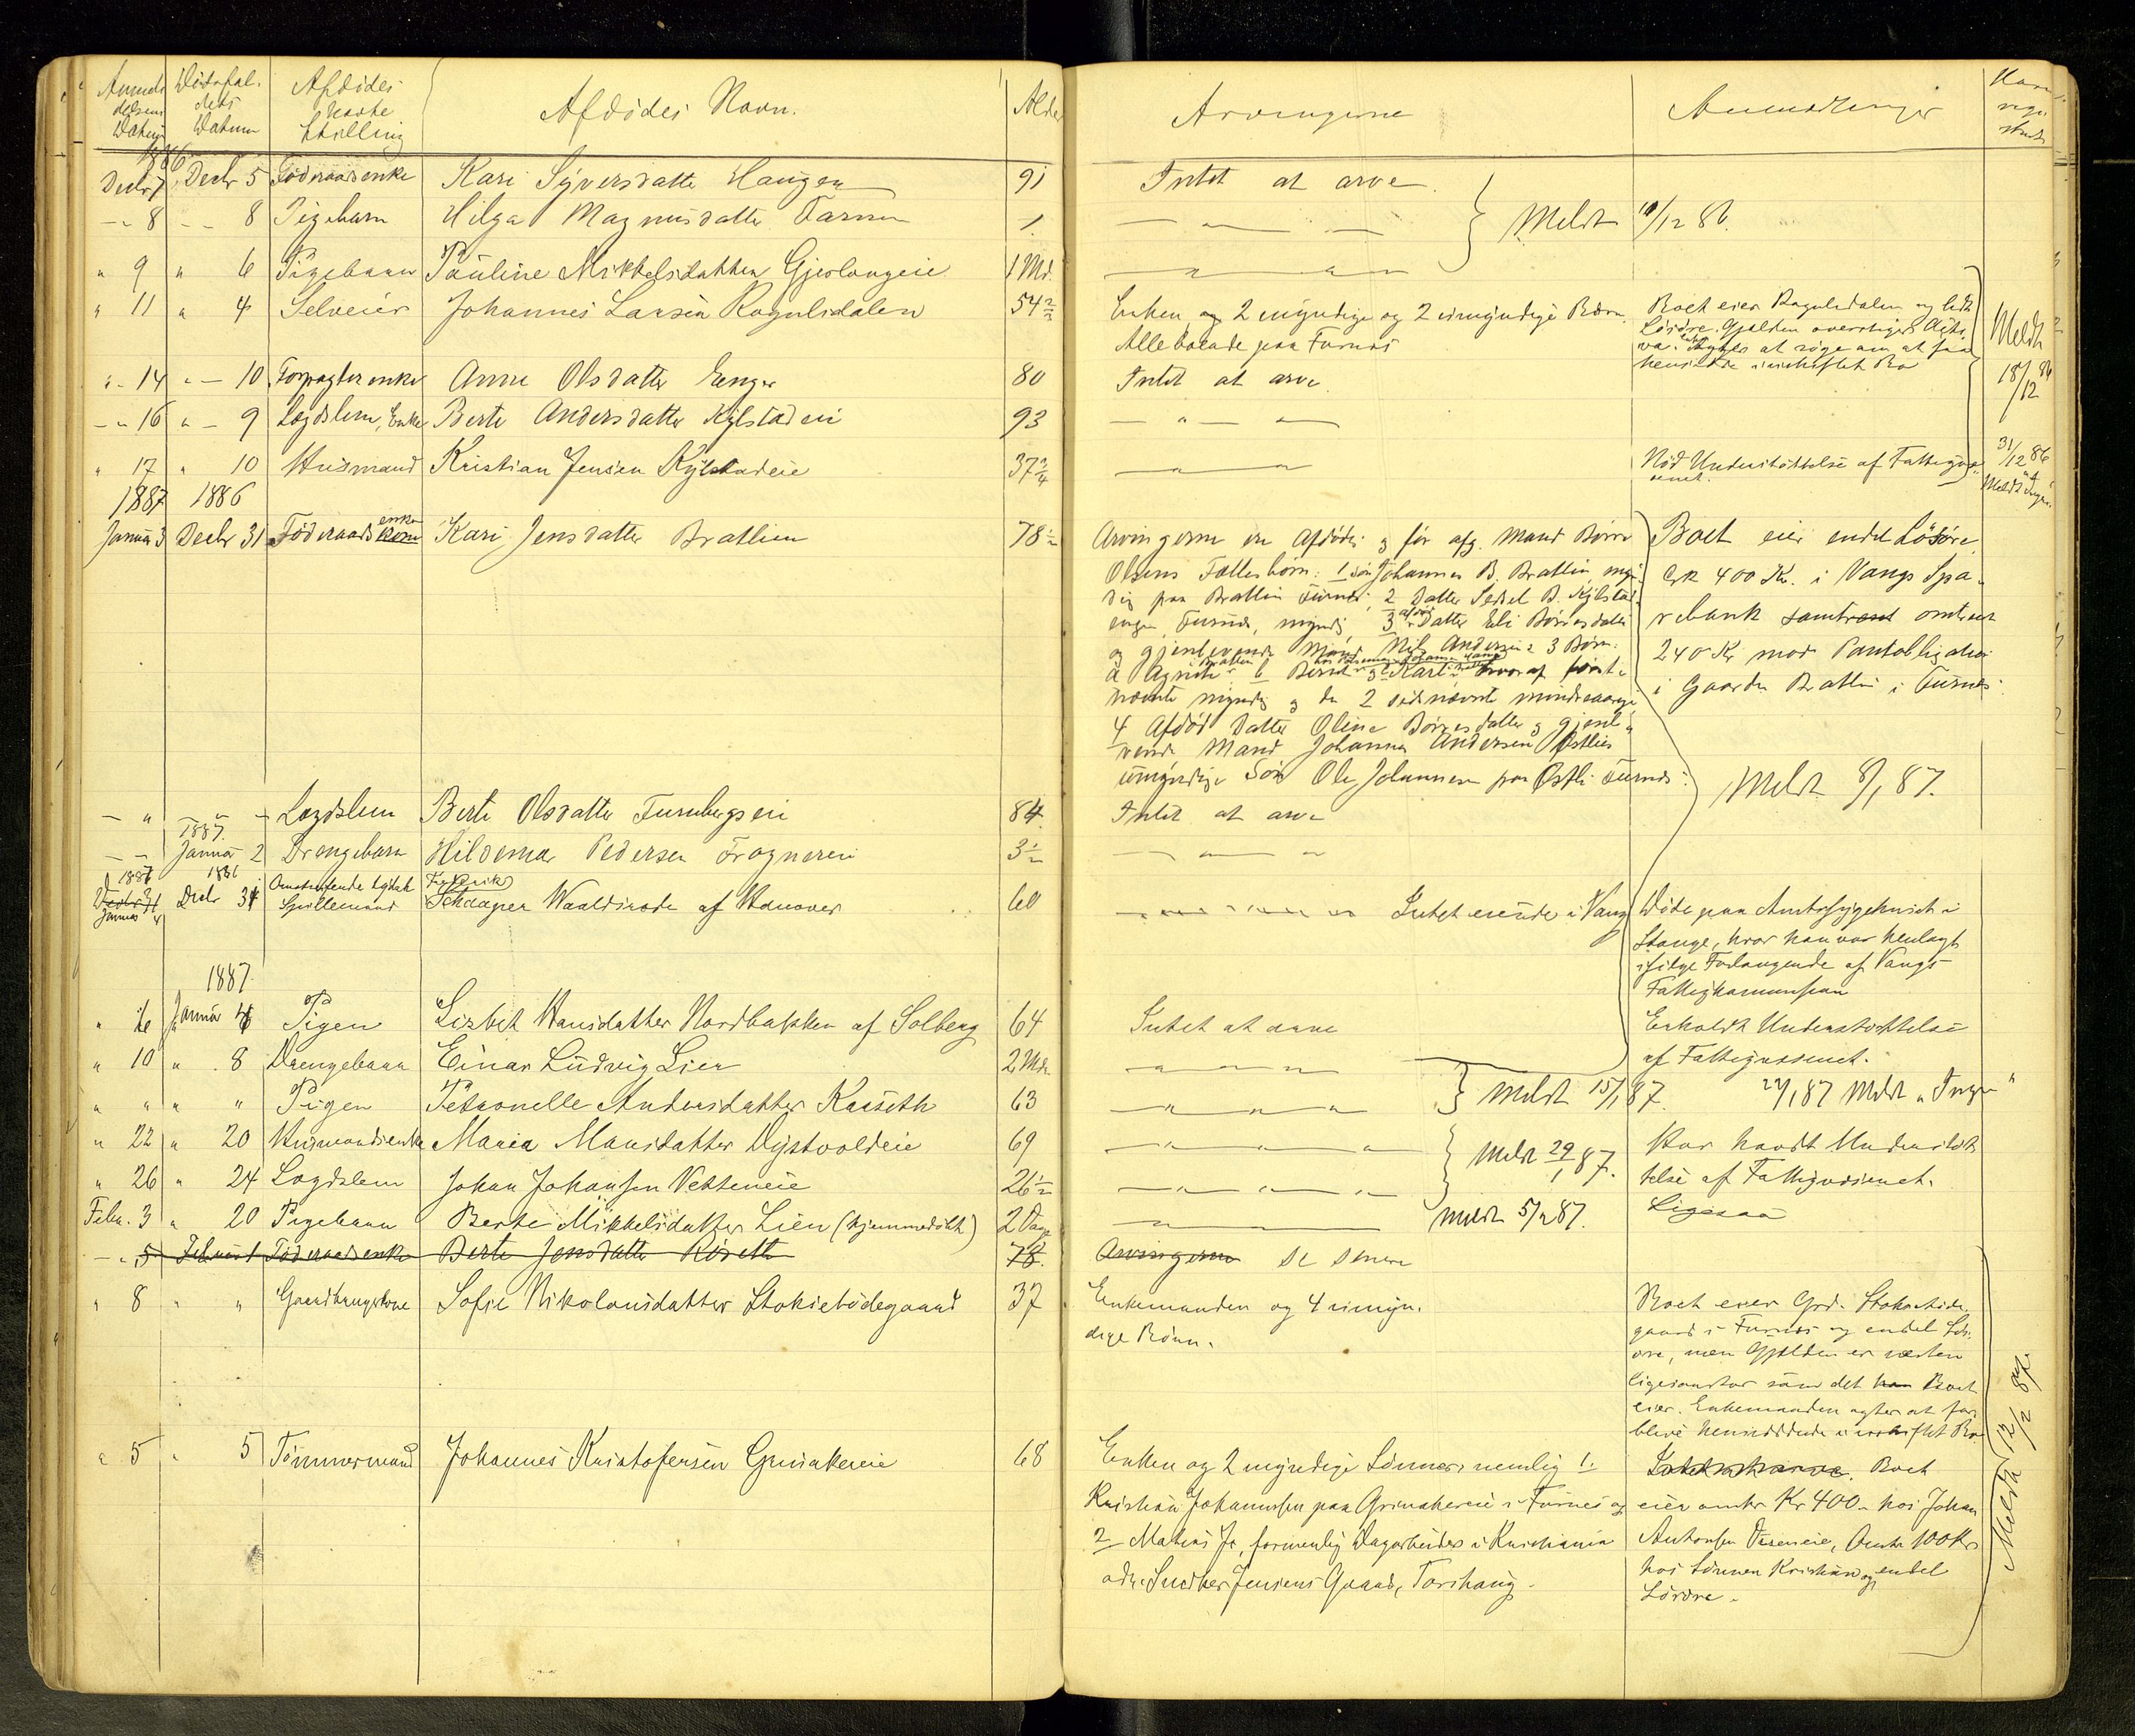 Anmeldelsens Datum
Dødsfaldets Datum
Afdødes næste Stilling
Afdødes Navn.
Alder
Arvingerne
Anmærkninger
1886
Decbr 7 Decbr 5 Föderaadsenke Kari Syversdatter Haugen 91 Intet at arve.
— " 8 — " 8 Pigebarn Hilga Magnusdatter Farmen 1. — " — Meldt 10/12 86.
" 9 " 6 Pigebarn Pauline Mikkelsdatter Gjerlaugeie 1 Md. — " — " —
" 11 " 4 Selveier Johannes Larsen Rognlidalen 54 2/3 Enken og 2 myndige og 2 umyndige Börn.
Alle boende paa Furnes
Boet eier Rognlidalen og lidt
Lösöre. Gjælden overstiger Acti
va. Enken agter at söge om at faa
hensidde i uskiftet Bo
Meldt 18/12 86
" - 14 " — 10 Forpagterenke Anne Olsdatter Enger 80 Intet at arve
— " 16 " — 9 Lægdslem, Enke Berte Andersdatter Kylstadeie 93 — " — " —
" 17 " 10 Husmand Kristian Jensen Kylstadeie 37 3/4 — " — " —
Nöd Understöttelse af Fattigvæ-
senet.
31/12 86 Meldt Ingen
1887 1886
Januar 3 Decbr 31 Föderaadskone enke Kari Jensdatter Brattlien 78 1/2
Arvingerne er Afdödes og för afg. Mand Börre
Olsens Fællesbörn: 1 Sön Johannes B. Brattlin, myn-
dig paa Brattlin Furnes, 2 Datter Sedsel B. Kylstad-
engen, Furnes, myndig 3 afdöd Datter Eli Börresdatter
og gjenlevende Mand Nils Andersens 3 Börn:
a Agnethe b Bernt og c Karl hvoraf först-
nævnte myndig og de 2 sidstnævnte mindreaarige
4 Afdöd Datter Oline Börresdatter og gjenle-
vende Mand Johannes Andersen Östlies
umyndige Sön Ole Johannesen paa Östli Furnes.
Boet eier endel Lösöre,
Crk 400 Kr. i Vangs Spa-
rebank samt omtrent
240 Kr mod Pantobligation
i Gaarden Brattli i Furnes.
Meldt 8/1 87.
— " — " — Lægdslem Berte Olsdatter Furubergseie 84 Intet at arve
1887.
— " Januar 2 Drengebarn Hildemar Pedersen Fragnereie 3 1/2 — " — "
1887 1886
Decbr 31 Januar 4 Decbr 31 Omstreifende tydsk Spillemand Frederik Schaaper Waaldirode af Hanover 60 Intet eiende i Vang
Döde paa Amtssygehuset i
Stange, hvor han var henlagt
ifölge Forlangende af Vangs
Fattigkommission
1887.
" 6 Januar 4 Pigen Lisbet Hansdatter Nordbakken af Solberg 64 Intet at arve
Erholdt Understöttelse
af Fattigvæsenet.
" 10 " 8 Drengebarn Einar Ludvig Lien 2 Mdr. — " — " —
" " " " Pigen Petronelle Andersdatter Karseth 63 — " — " — Meldt 15/1 87. 22/1 87 Meldt "Ingen"
" 22 " 20 Husmandsenke Maria Mansdatter Dystvoldeie 69 — " — " — Meldt 29/1 87.
Har havdt Understöt-
telse af Fattigvæsenet.
" 26 " 24 Lægdslem Johan Johansen Vetteneie 26 1/2 — " — " —
Febr. 3 " 20 Pigebarn Berte Mikkelsdatter Lien (hjemmedöbt) 2 Dage — " — Meldt 5/2 87. Ligesaa
— " 5 Februar 1 Föderaadsenke Berte Jensdatter Röseth 78. Arvingerne se senere
" 8 " " Gaardbrugerkone Sofie Nikolausdatter Stokstebödegaard 37 Enkemanden og 4 umyn-
dige Börn.
Boet eier Grd. Stoksteböde-
gaard i Furnes og endel Lös-
öre, men Gjælden er næsten
ligesaastor som det han Boet
eier. Enkemanden agter at for-
blive hensiddende i uskiftet Bo
Meldt 12/2 87.
" 5 " 5 Tömmermand Johannes Kristofersen Grinakereie 68
Enken og 2 myndige Sönner, nemlig 1.
Kristian Johannesen paa Grinakereie i Furnes og
2 Matias Jo, formentlig Dagarbeider i Kristiania
adr. Snedker Jensens Gaard, Torshaug.
Intet at arve. Boet
eier omtr Kr 400.- hos Johan
Antonsen Dæreneie, Omtr 100 Kr
hos Sönnen Kristian og endel
Lösöre.